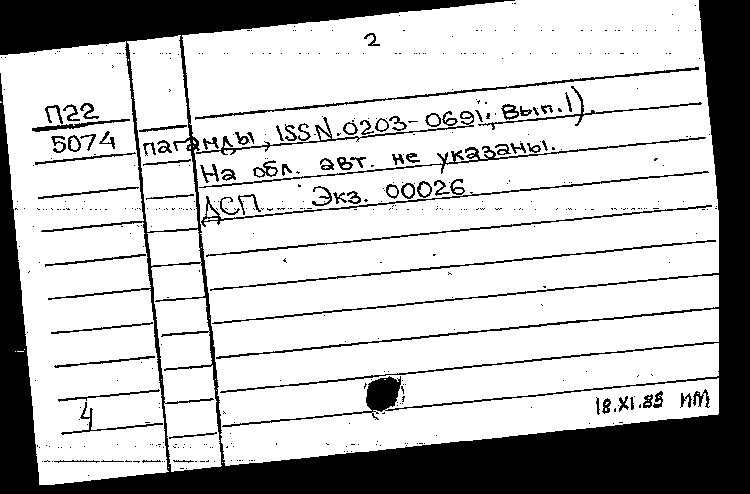 2
П22
5074 паганды, ISSN.0203-0691; Вып.1).
На обл. авт. не указаны.
ДСП Экз. 00026
4
18.XI.83 ИМ